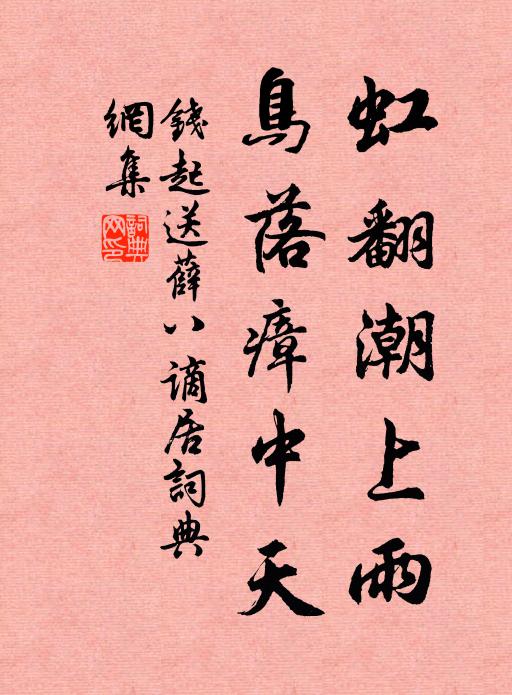 虹翻潮上雨
鳥落瘴中天
錢起送薛八謫居詞典
網集
詞典網印